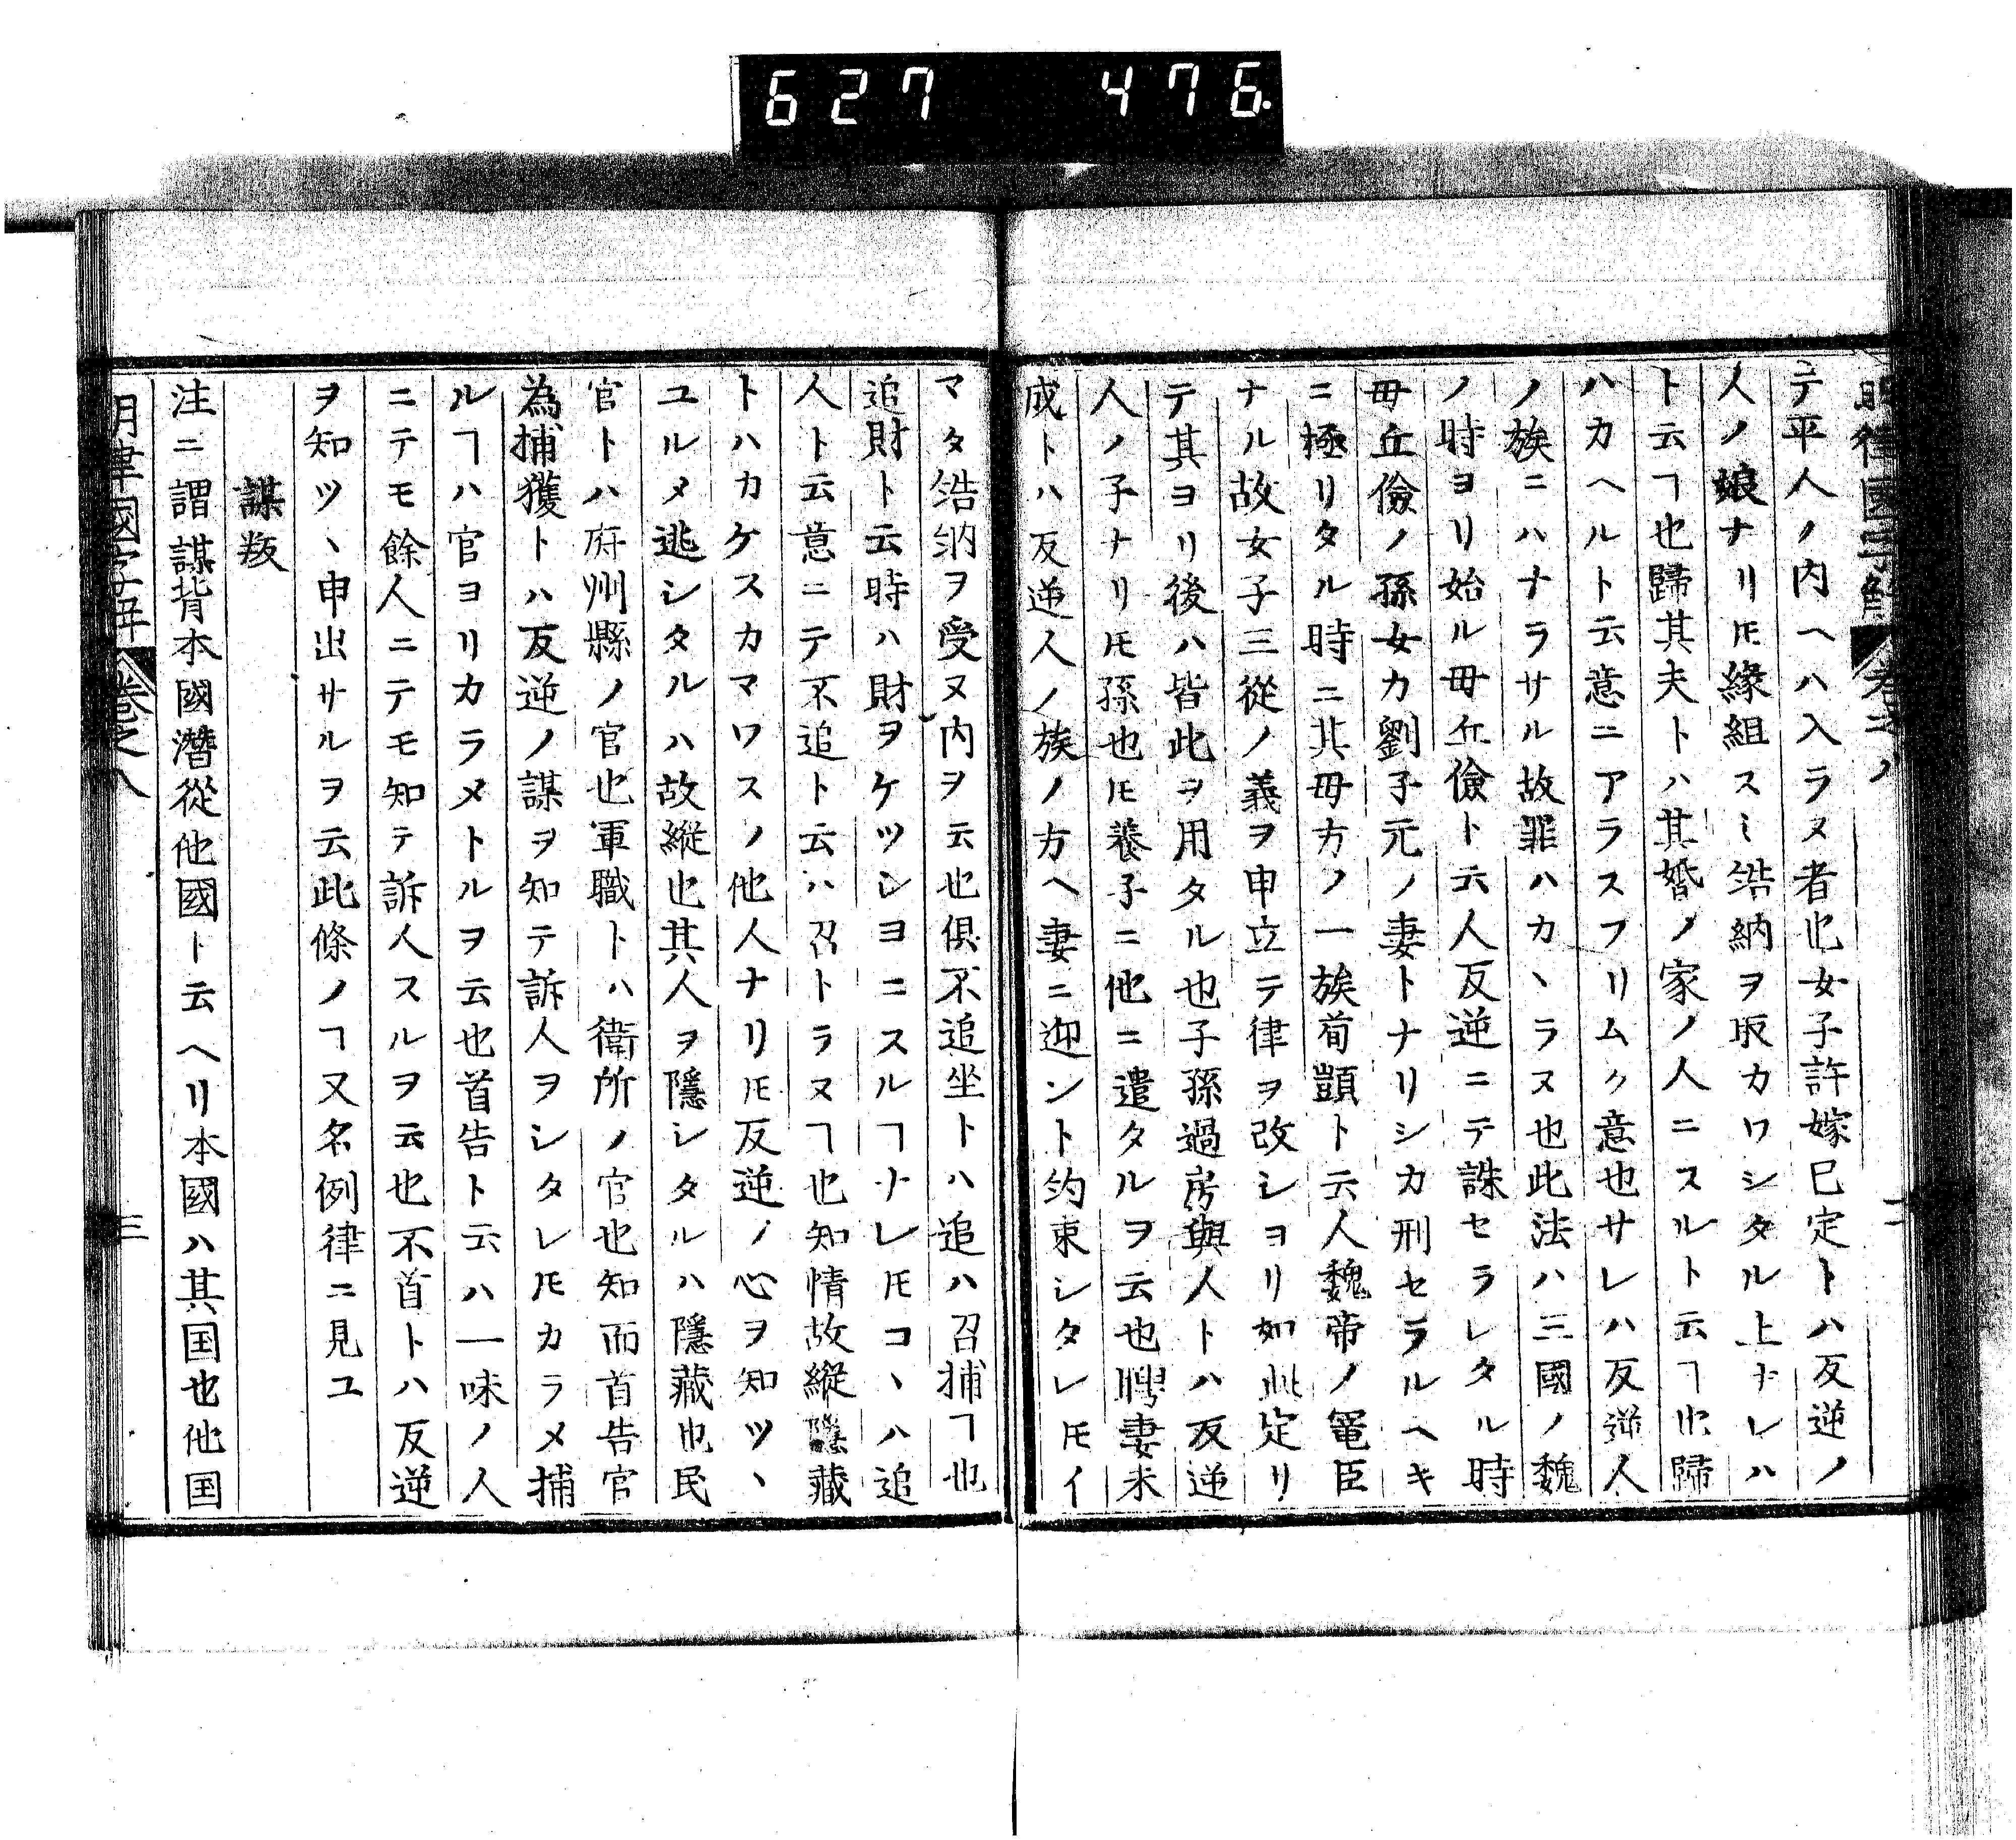 627 476
明律國字解 卷之八
ニテ平人ノ内ヘハ入ラヌ者也女子許嫁已定トハ反逆ノ
人ノ娘ナリ𪜈緣組スミ結納ヲ取カワシタル上ナレハ
ト云ヿ也歸其夫トハ其婚ノ家ノ人ニスルト云ヿ也歸
ハカヘルト云意ニアラスフリムク意也サレハ反逆人
ノ族ニハナラサル故罪ハカヽラヌ也此法ハ三國ノ魏
ノ時ヨリ始ル毋丘儉ト云人反逆ニテ誅セラレタル時
毋丘儉ノ孫女カ劉子元ノ妻トナリシカ刑セラルヘキ
ニ極リタル時ニ其母方ノ一族荀顗ト云人魏帝ノ寵臣
ナル故女子三從ノ義ヲ申立テ律ヲ改シヨリ如此定リ
テ其ヨリ後ハ皆此ヲ用タル也子孫過房與人トハ反逆
人ノ子ナリ𪜈孫也𪜈養子ニ他ニ遣タルヲ云也聘妻未
成トハ反逆人ノ族ノ方ヘ妻ニ迎ント約束シタレ𪜈イ
マタ結納ヲ受ヌ内ヲ云也俱不追坐トハ追ハ召捕ヿ也
追財ト云時ハ財ヲケツシヨニスルヿナレ𪜈コヽハ追
人ト云意ニテ不追ト云ハ召トラヌヿ也知情故縱隱藏
トハカケスカマワスノ他人ナリ𪜈反逆ノ心ヲ知ツヽ
ユルメ逃シタルハ故縱也其人ヲ隱シタルハ隱藏也民
官トハ府州縣ノ官也軍職トハ衛所ノ官也知而首告官
為捕獲トハ反逆ノ謀ヲ知テ訴人ヲシタレ𪜈カラメ捕
ルヿハ官ヨリカラメトルヲ云也首告ト云ハ一味ノ人
ニテモ餘人ニテモ知テ訴人スルヲ云也不首トハ反逆
ヲ知ツヽ申出サルヲ云此條ノヿ又名例律ニ見ユ
謀叛
注ニ謂謀背本國潛從他國ト云ヘリ本國ハ其国也他国
明律國字解 卷之八 三